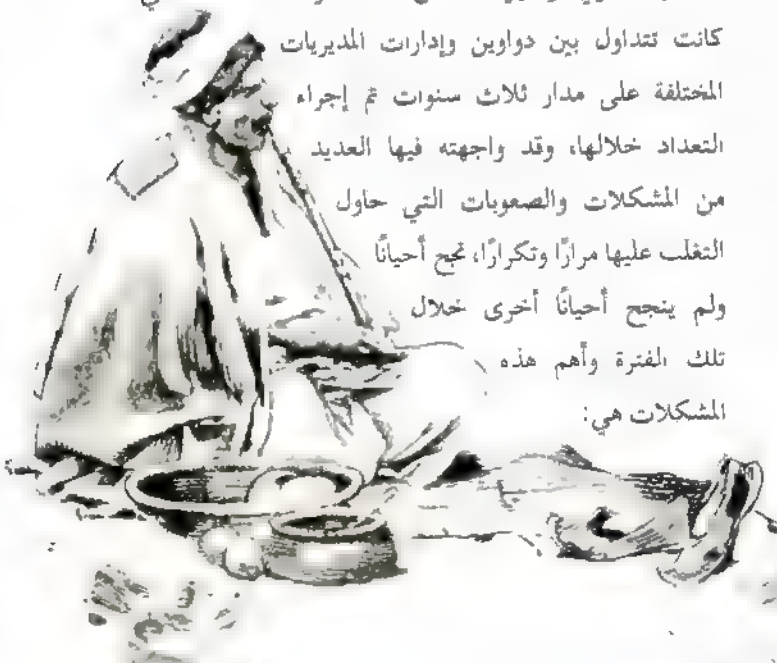 كانت تتداول بين دواوين وإدارات المديريات
المختلفة على مدار ثلاث سنوات تم إجراء
التعداد خلالها، وقد واجهته فيها العديد
من المشكلات والصعوبات التي حاول
التغلب عليها مرارًا وتكرارًا، نجح أحيانًا
ولم ينجح أحيانًا أخرى خلال
تلك الفترة وأهم هذه
المشكلات هي: